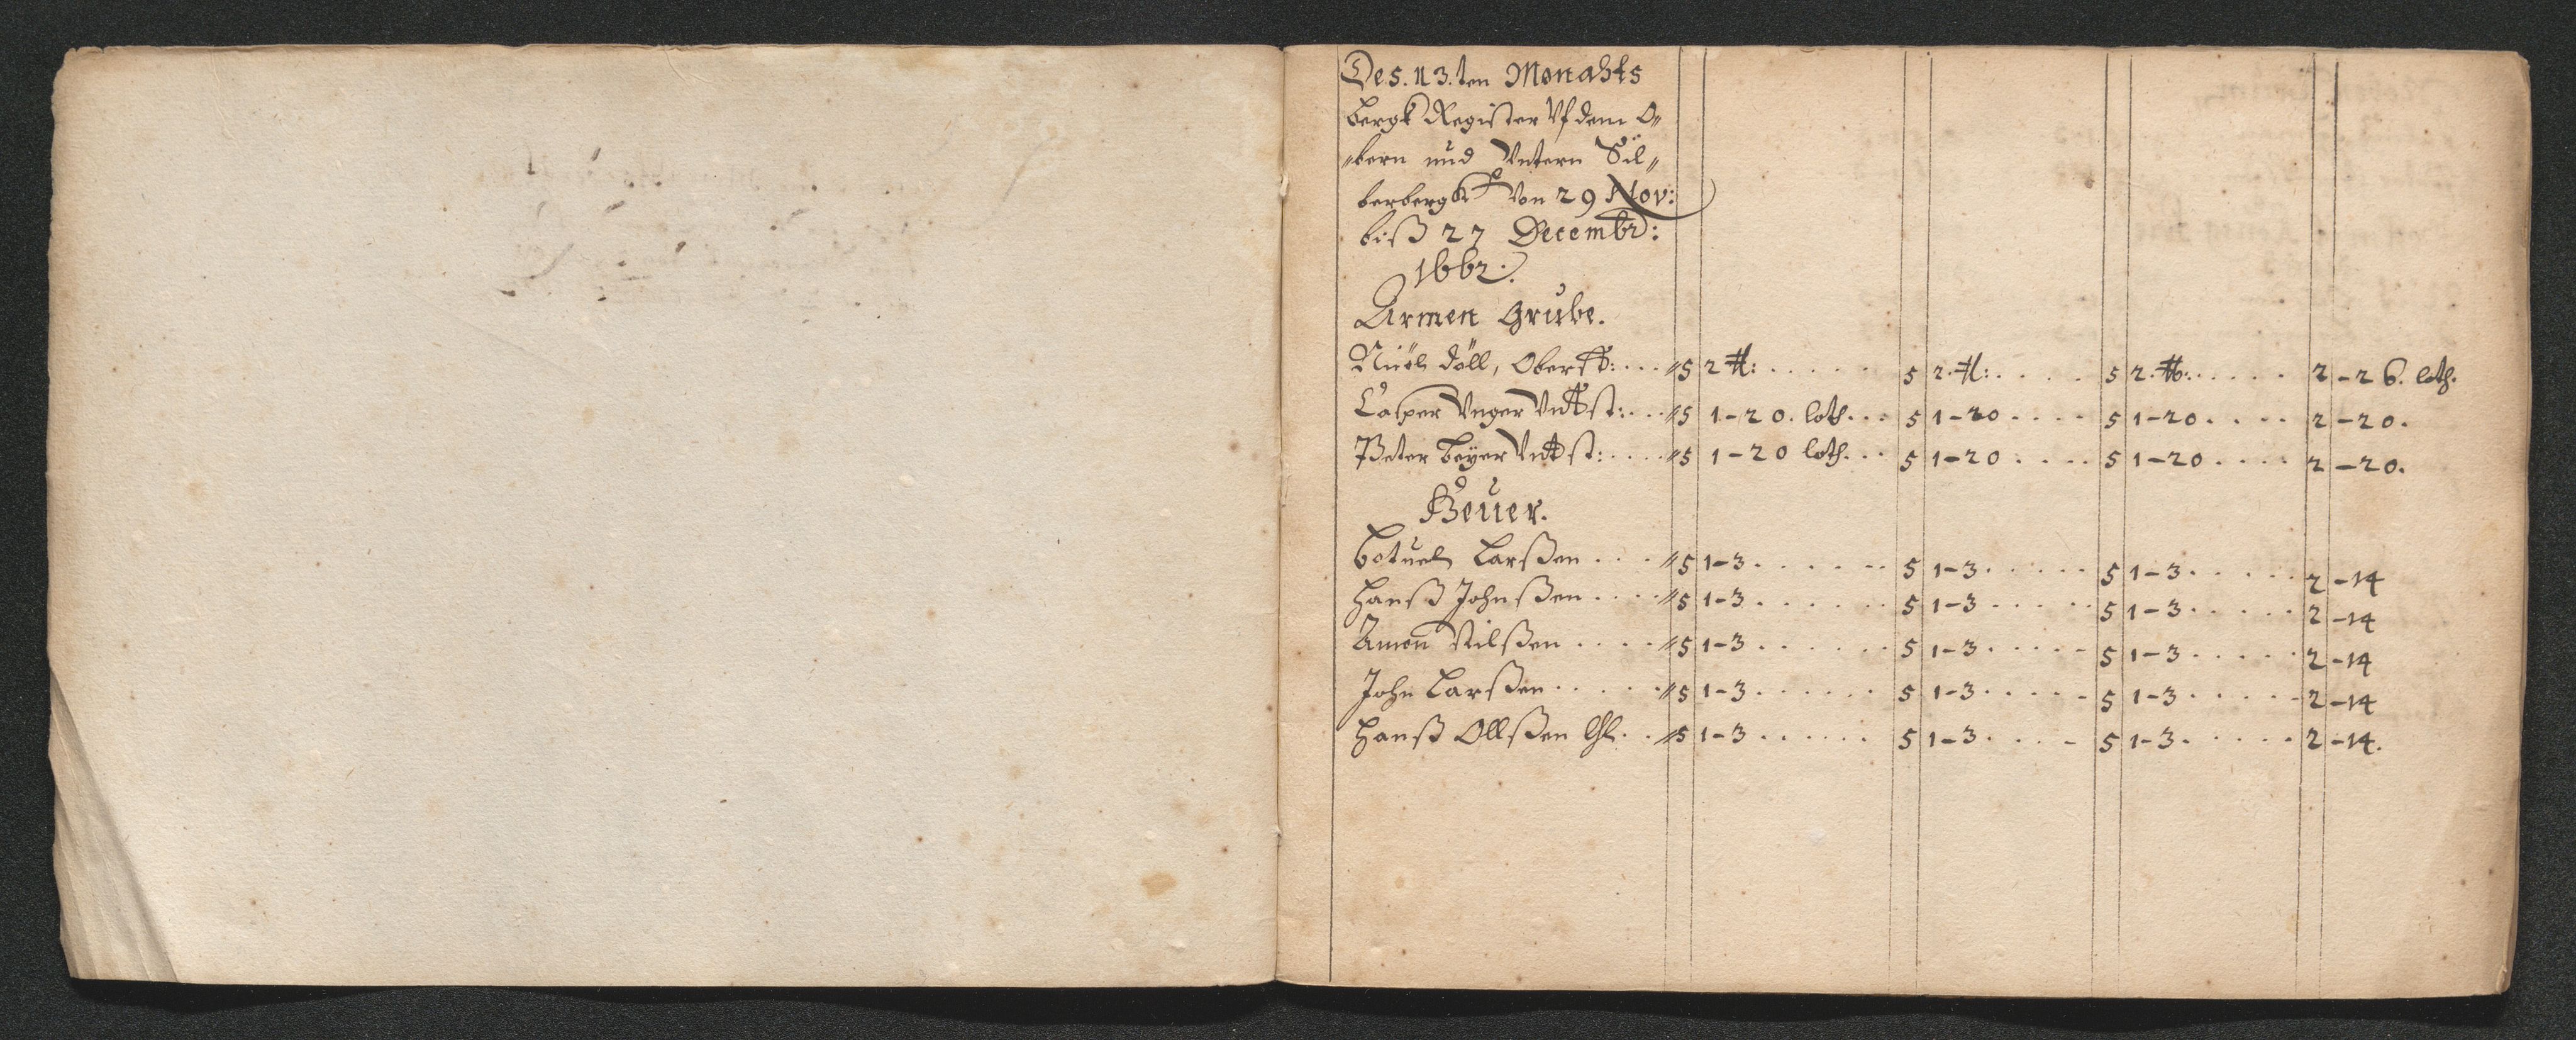 Des. 13.ten Monahts
bergk Register Vf dem O„
„bern und Vntern Sil„
berbergk Von 29 Nov:
biß 27 Decembr:
1662.
Armen Grube.
Nicol Döll, Oberst: .... 5 2 ℔: ..... 5 2. ℔: .... 5 2. ℔: ..... 2 - 26. loth.
Casper Unger Untst: ... 5 1-20. loth... 5 1-20 .... 5 1-20 .... 2 - 20.
Peter Beyer Untst: .... 5 1-20 loth... 5 1-20 .... 5 1-20 .... 2 - 20.
Heuer.
Botuel Larßen .... 5 1-3 ...... 5 1-3 ..... 5 1-3 ..... 2 - 14
Hanß Johnßen .... 5 1-3 ...... 5 1-3 ..... 5 1-3 ..... 2 - 14
Amon Nilßen .... 5 1-3 ...... 5 1-3 ..... 5 1-3 ..... 2 - 14
John Larßen ..... 5 1-3 ...... 5 1-3 ..... 5 1-3 ..... 2 - 14
Hanß Ollßen .. 5 1-3 ...... 5 1-3 .... 5 1-3 ..... 2 - 14.